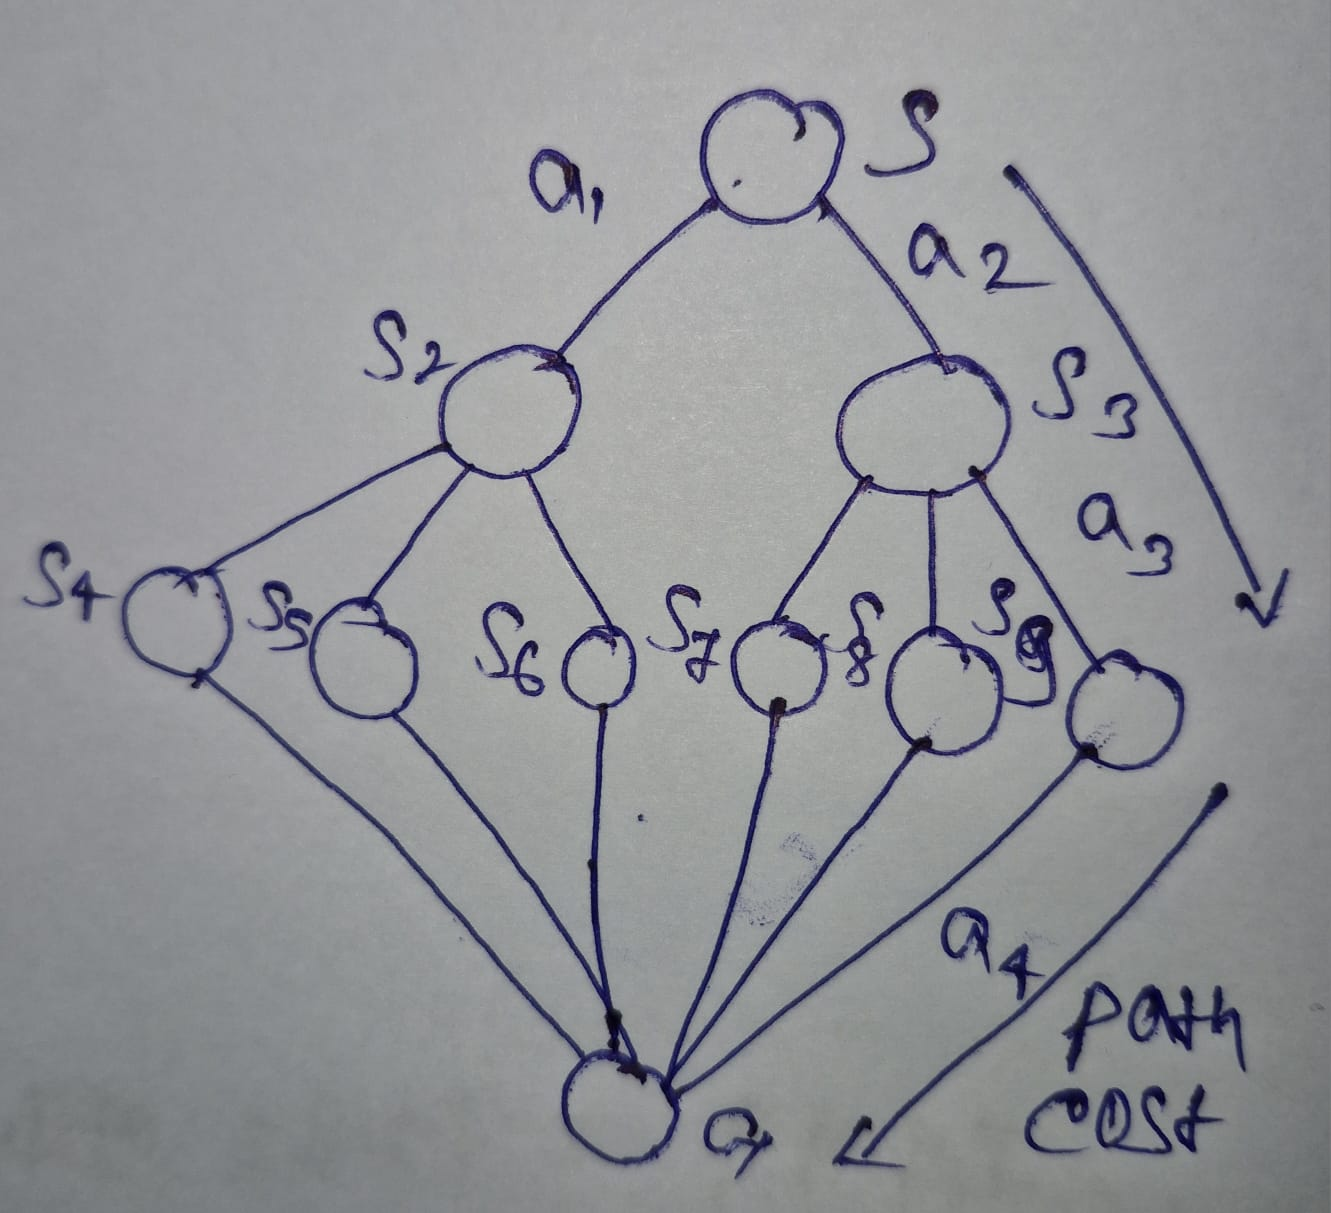 S
a1
a2
S2
S3
a3
S4
S5
S6
S7
S8
S9
a4
Path
cost
G